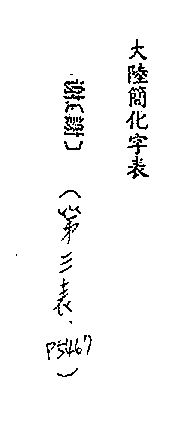 大陸簡化字表
(第三表、
P5467)